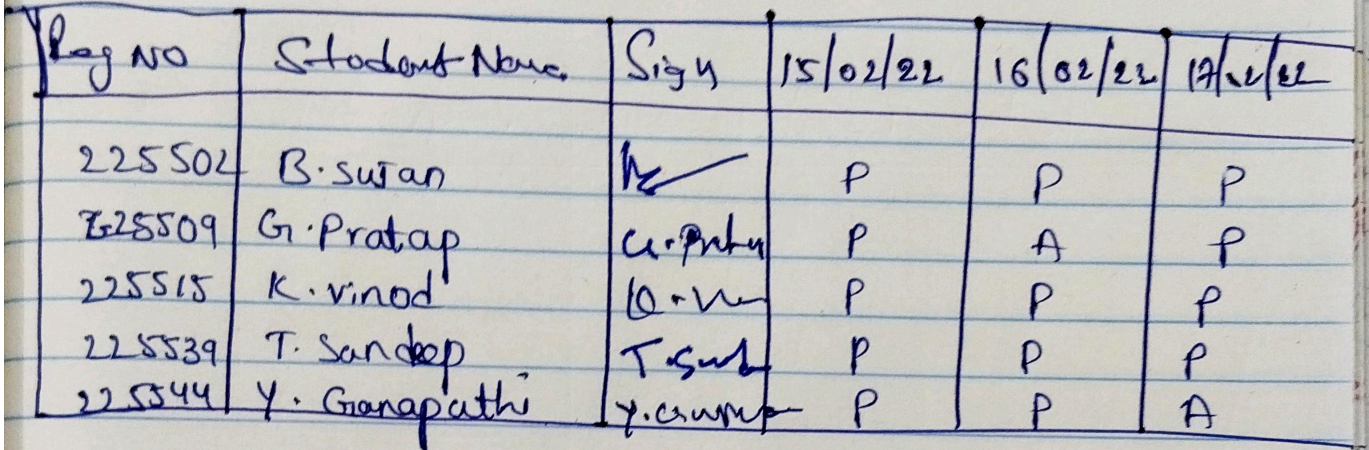 Reg NO Student Name Sign 15/02/22 16/02/22 17/02/22
225502 B. sujan P P P
225509 G. Pratap P A P
225515 K. vinod P P P
225539 T. Sandeep P P P
225544 Y. Ganapathi P P A